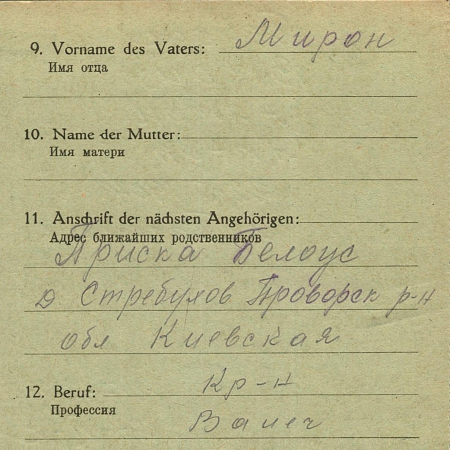 9. Vorname des Vaters: Мирон
Имя отца
10. Name der Mutter:
Имя матери
11. Anschrift der nächsten Angehörigen:
Адрес ближайших родственников
Приска Белоус
д Стребухов Броворск р-н
обл Киевская
12. Beruf: Кр-н
Профессия